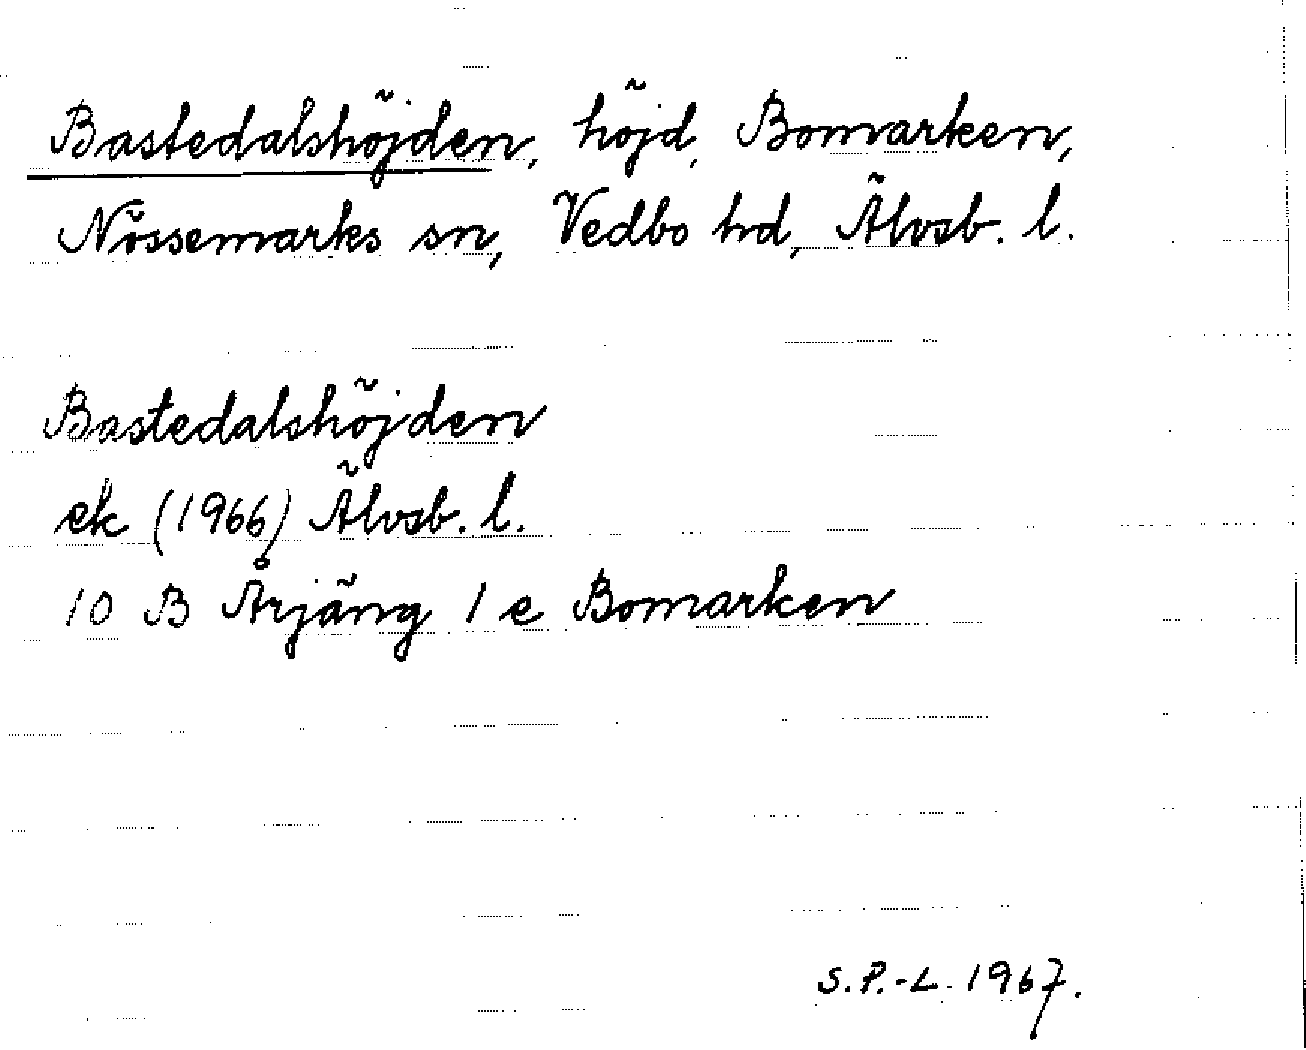 Bastedalshöjden, höjd, Bomarken,
Nössemarks sn, Vedbo hd, Älvsb. l.
Bastedalshöjden
ek (1966) Älvsb. l.
10 B Årjäng 1 e Bomarken
S.P.-L. 1967.